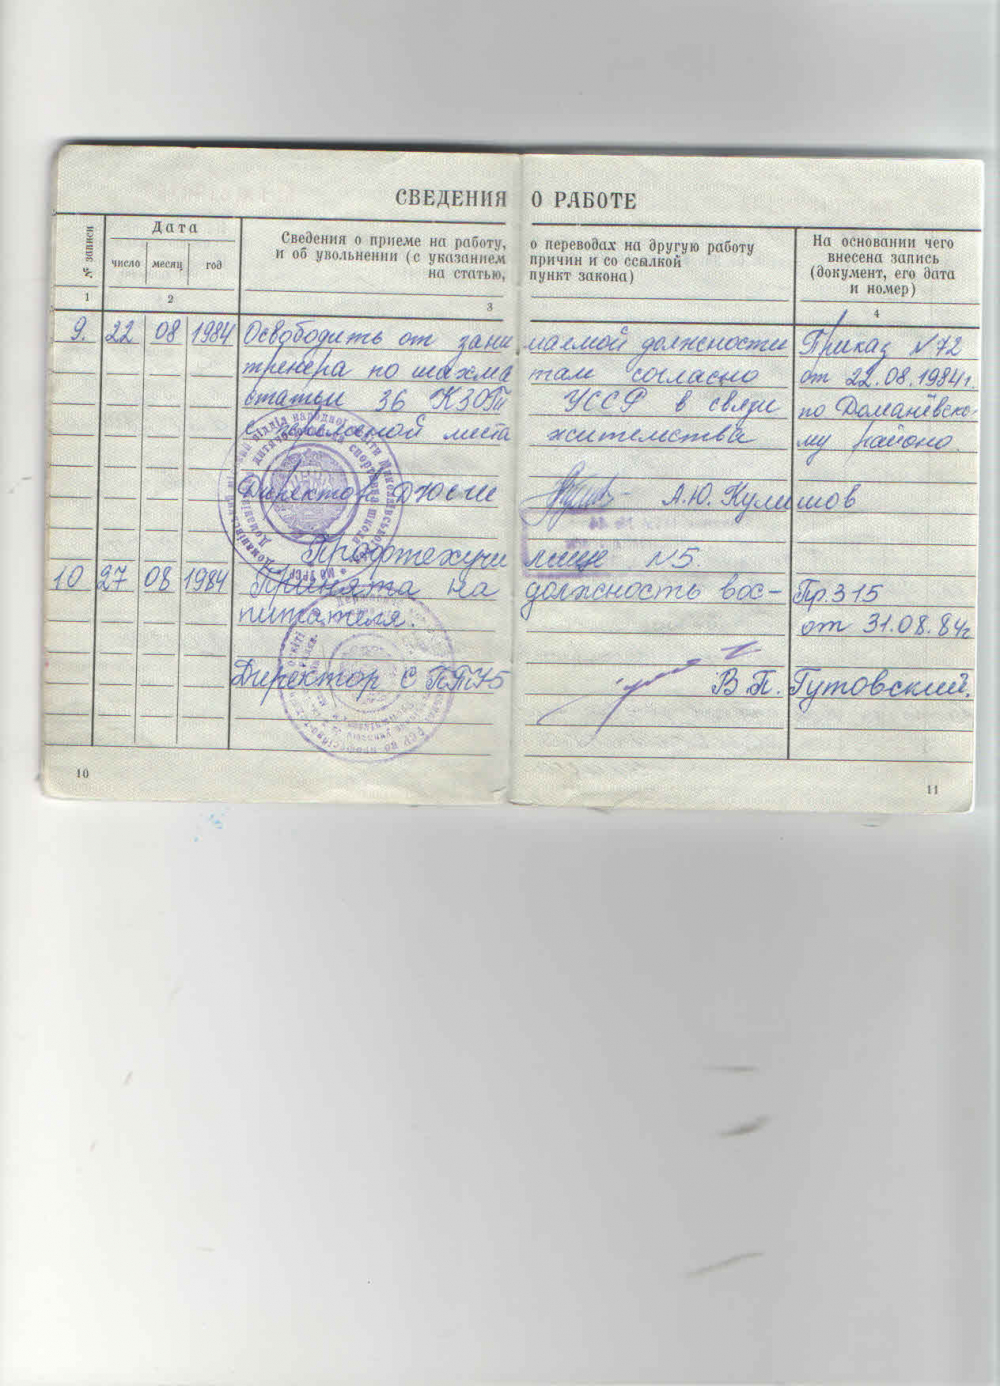 СВЕДЕНИЯ О РАБОТЕ
№ записи
Дата
число месяц год
Сведения о приеме на работу, о переводах на другую работу
и об увольнении (с указанием причин и со ссылкой
на статью, пункт закона)
На основании чего
внесена запись
(документ, его дата
и номер)
1 2 3 4
9. 22 08 1984 Освободить от занимаемой должности Приказ №72
тренера по шахматам согласно от 22.08.1984г.
статьи 36 КЗОТ УССР в связи по Доманёвско-
с переменой места жительства му району.
Директор ДЮСШ А.Ю. Кулишов
Профтехучилище №5.
10 27 08 1984 Принята на должность вос- Пр.315
питателя. от 31.08.84г
Директор СПТУ5 В.П. Гутовский.
10 11